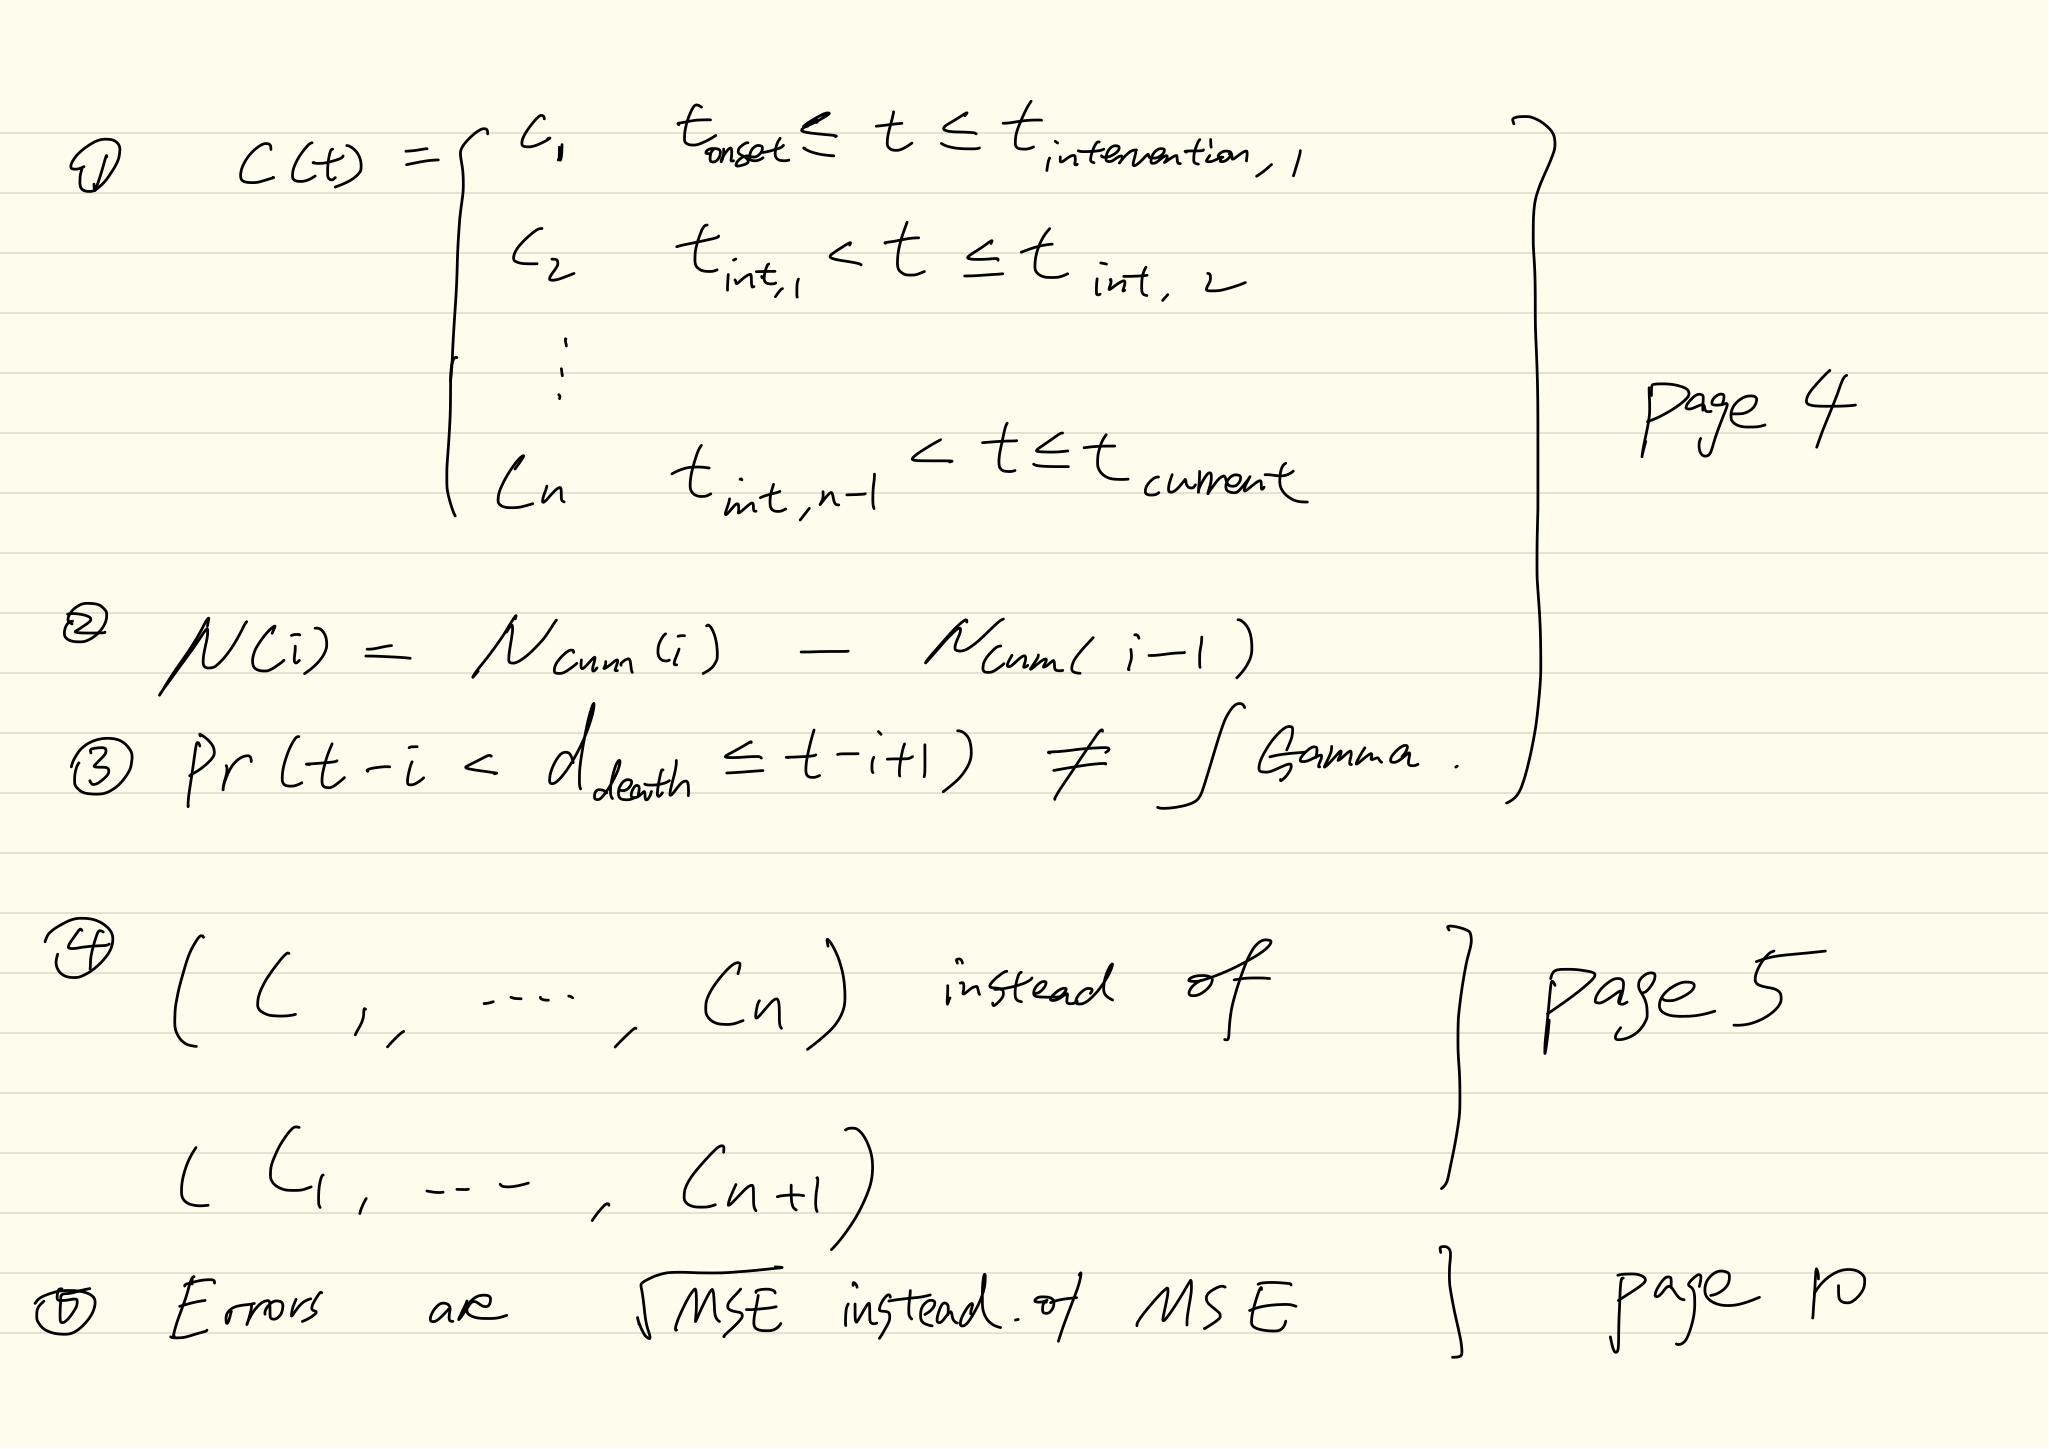 ① C(t) = { C₁ t_onset ≤ t ≤ t_intervention, 1
C₂ t_int,1 < t ≤ t_int, 2
⋮
Cn t_int,n-1 < t ≤ t_current
page 4
② N(i) = N_cum(i) — N_cum(i-1)
③ Pr(t-i < d_death ≤ t-i+1) ≠ ∫ Gamma.
④ (C₁, ----, Cn) instead of
page 5
(C₁, ---, Cn+1)
⑤ Errors are √MSE instead.of MSE ] page 10